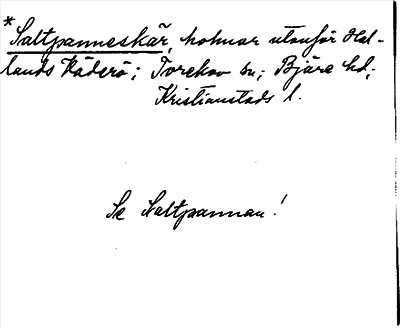 *Saltpanneskär, holmar utanför Hal-
lands Väderö; Torekov sn; Bjäre hd;
Kristianstads l.
Se Saltpannan!